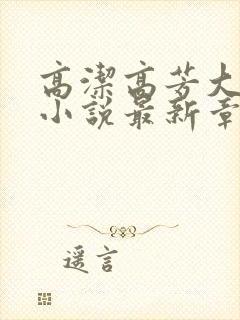 高潔高芳大
小說最新章
遥言